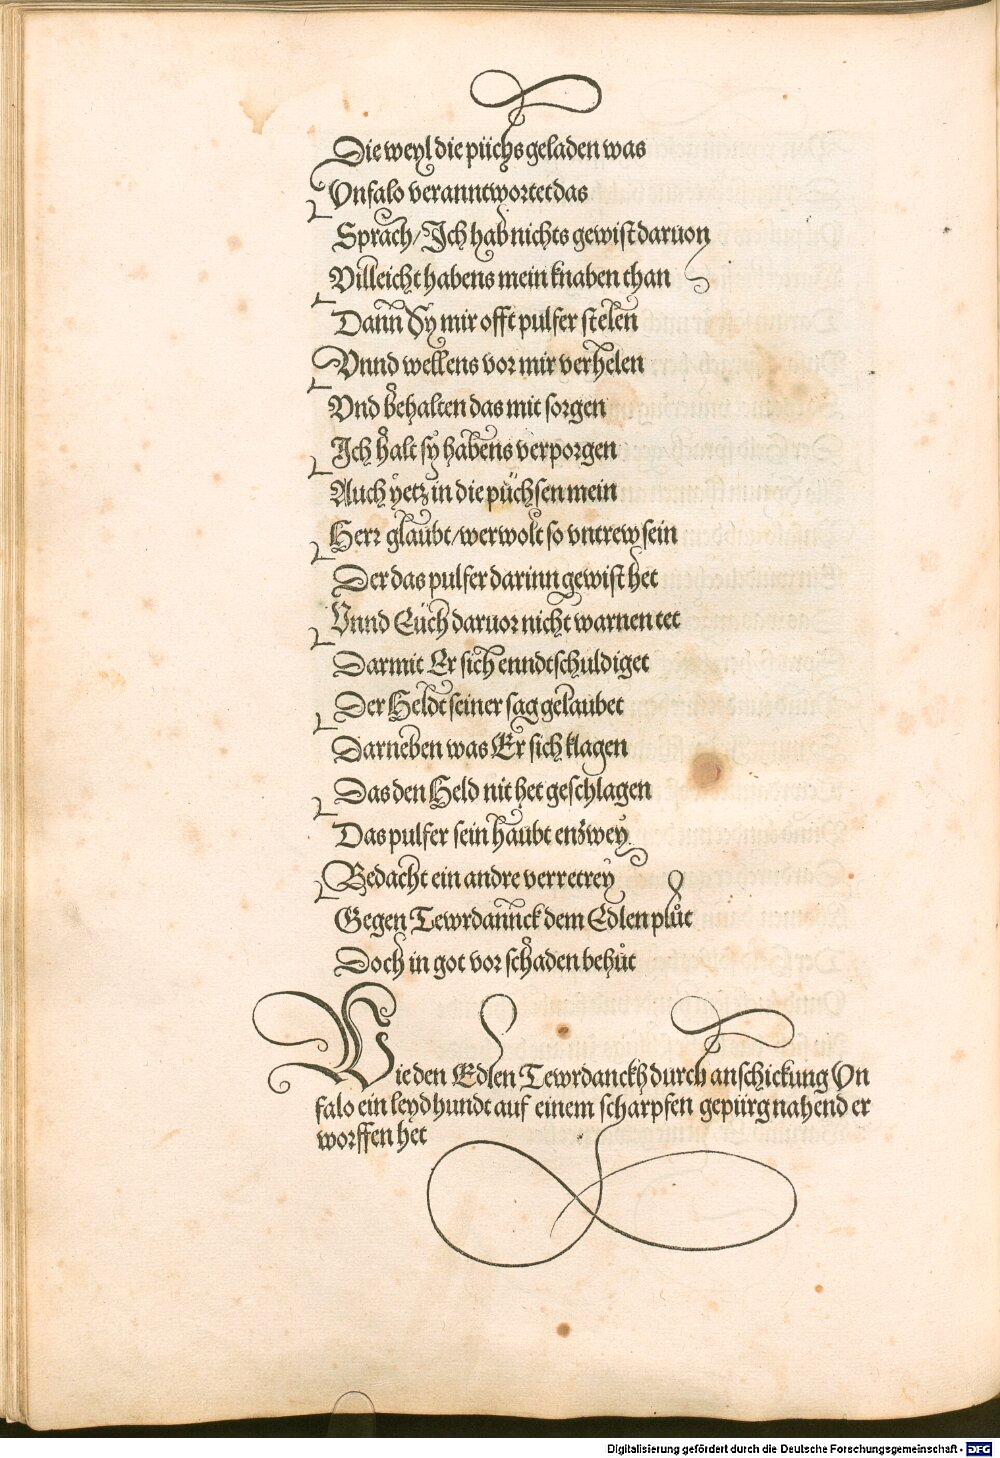 Die weyl die püchs geladen was
Vnfalo veranntwortet das
Sprach/Ich hab nichts gewist daruon
Villeicht habens mein knaben than
Dann Sy mir offt pulfer stelen
Vnnd wellens vor mir verhelen
Vnd behalten das mit sorgen
Ich halt sy habens verporgen
Auch yetz in die püchsen mein
Herr glaubt/wer wolt so vntrew sein
Der das pulfer darinn gewist het
Vnnd Eüch daruor nicht warnen tet
Darmit Er sich enndtschuldiget
Der Heldt seiner sag gelaubet
Darneben was Er sich klagen
Das den Held nit het geschlagen
Das pulfer sein haubt enzwey
Bedacht ein andre verretrey
Gegen Tewrdannck dem Edlen plůt
Doch in got vor schaden behůt
Wie den Edlen Tewrdanckh durch anschickung Vn
falo ein leydhundt auf einem scharpfen gepürg nahend er
worffen het
Digitalisierung gefördert durch die Deutsche Forschungsgemeinschaft - DFG